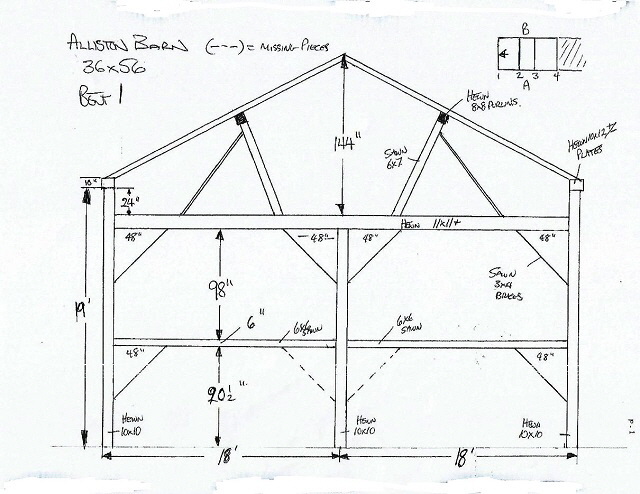 ALLISTON BARN (---) = MISSING PIECES
36x56
BENT 1
B
1 2 3 4
A
HEWN
8x8 PURLINS.
144"
SAWN
6x7
HEWN 10x12"±
PLATES
10"
24"
HEWN 11x11+
48"
48"
48"
48"
19'
98"
SAWN
3x4
BRACES
6"
6x6
SAWN
6x6
SAWN
48"
48"
90½"
HEWN
10x10
HEWN
10x10
HEWN
10x10
18'
18'
P-1